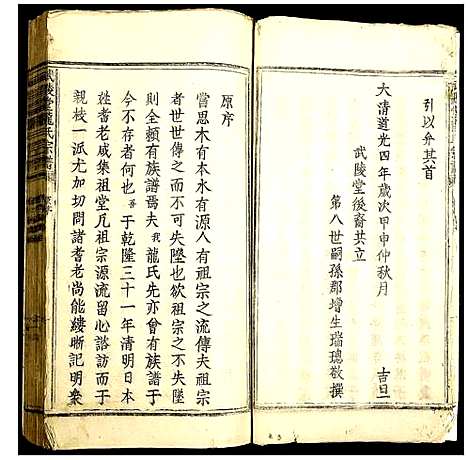 引以弁其首
大清道光四年歲次甲申仲秋月
吉旦
武陵堂後裔共立
第八世嗣孫郡增生瑞璁敬撰
原序
嘗思木有本水有源人有祖宗之流傳夫祖宗
者世世傳之而不可失墜也欲祖宗之不失墜
則全賴有族譜焉夫我龍氏先亦曾有族譜于
今不存者何也吾于乾隆三十一年清明日本
姓耆老咸集祖堂凡祖宗源流留心諮訪而于
親枝一派尤加切問諸耆老尚能縷晰記明衆
武陵堂龍氏宗譜